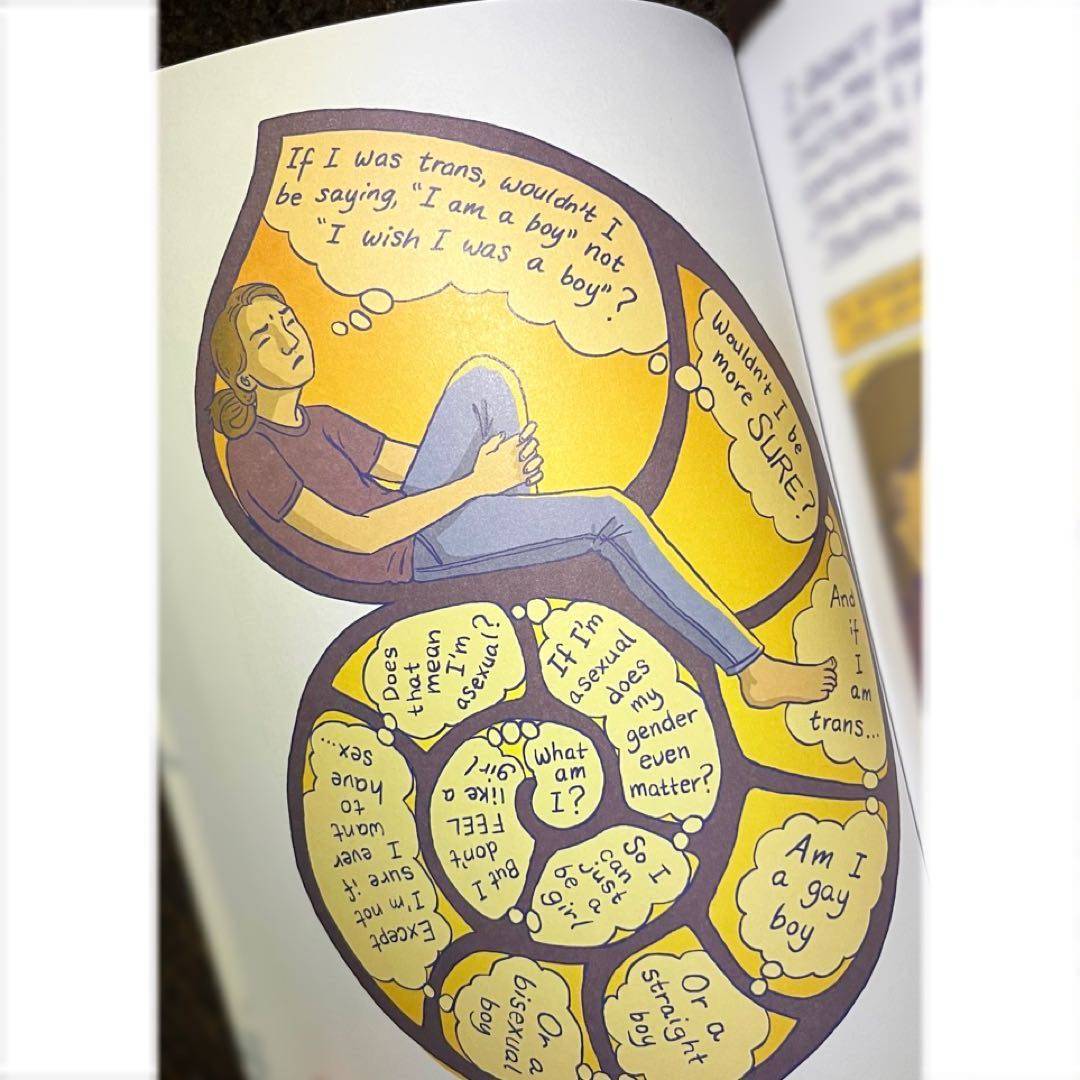 If I was trans, wouldn't I
be saying, "I am a boy" not
"I wish I was a boy"?
Wouldn't I be
more SURE?
And
if
I
am
trans...
Am I
a gay
boy
Or a
straight
boy
Or a
bisexual
boy
Except
I'm not
sure if
I ever
want
to
have
sex...
Does
that
mean
I'm
asexual?
If I'm
asexual
does
my
gender
even
matter?
So I
can
just
be a
girl
But I
don't
FEEL
like a
girl
What
am
I?
I DON'T